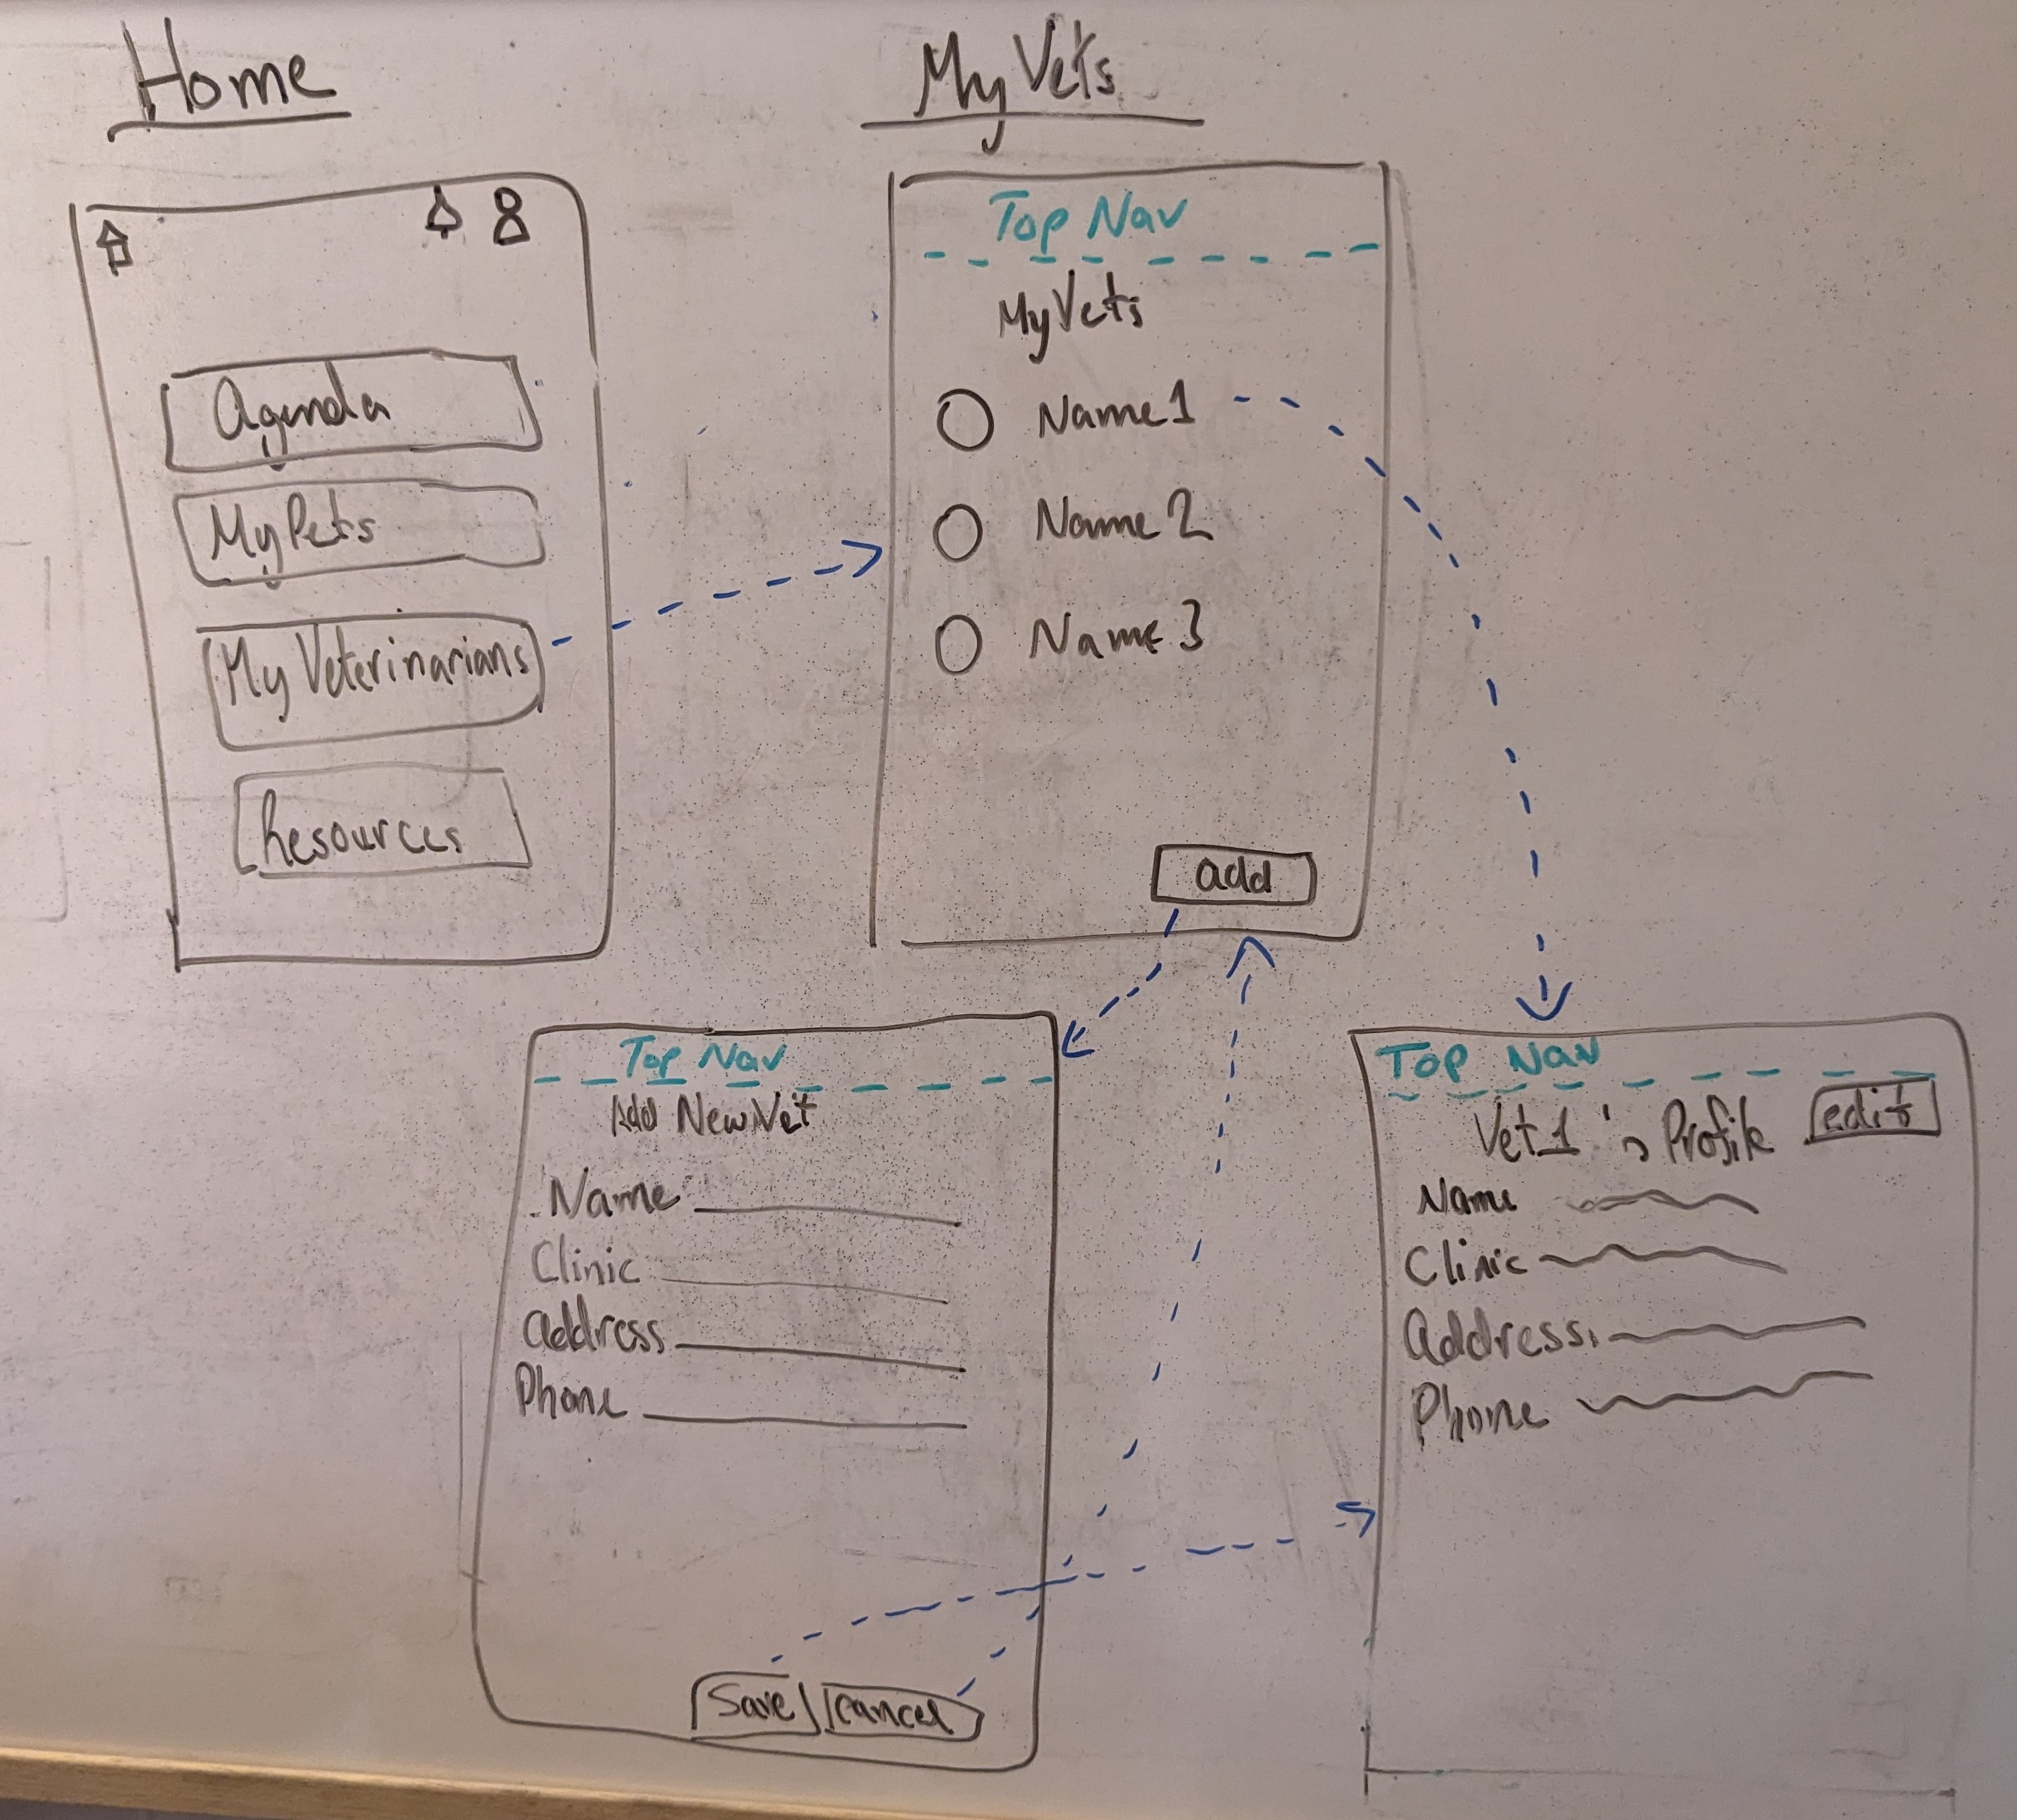 Home
Agenda
My Pets
My Veterinarians
Resources
My Vets
Top Nav
My Vets
Name 1
Name 2
Name 3
add
Top Nav
Add New Vet
Name
Clinic
Address
Phone
Save
Cancel
Top Nav
Vet 1's Profile
edit
Name
Clinic
Address
Phone